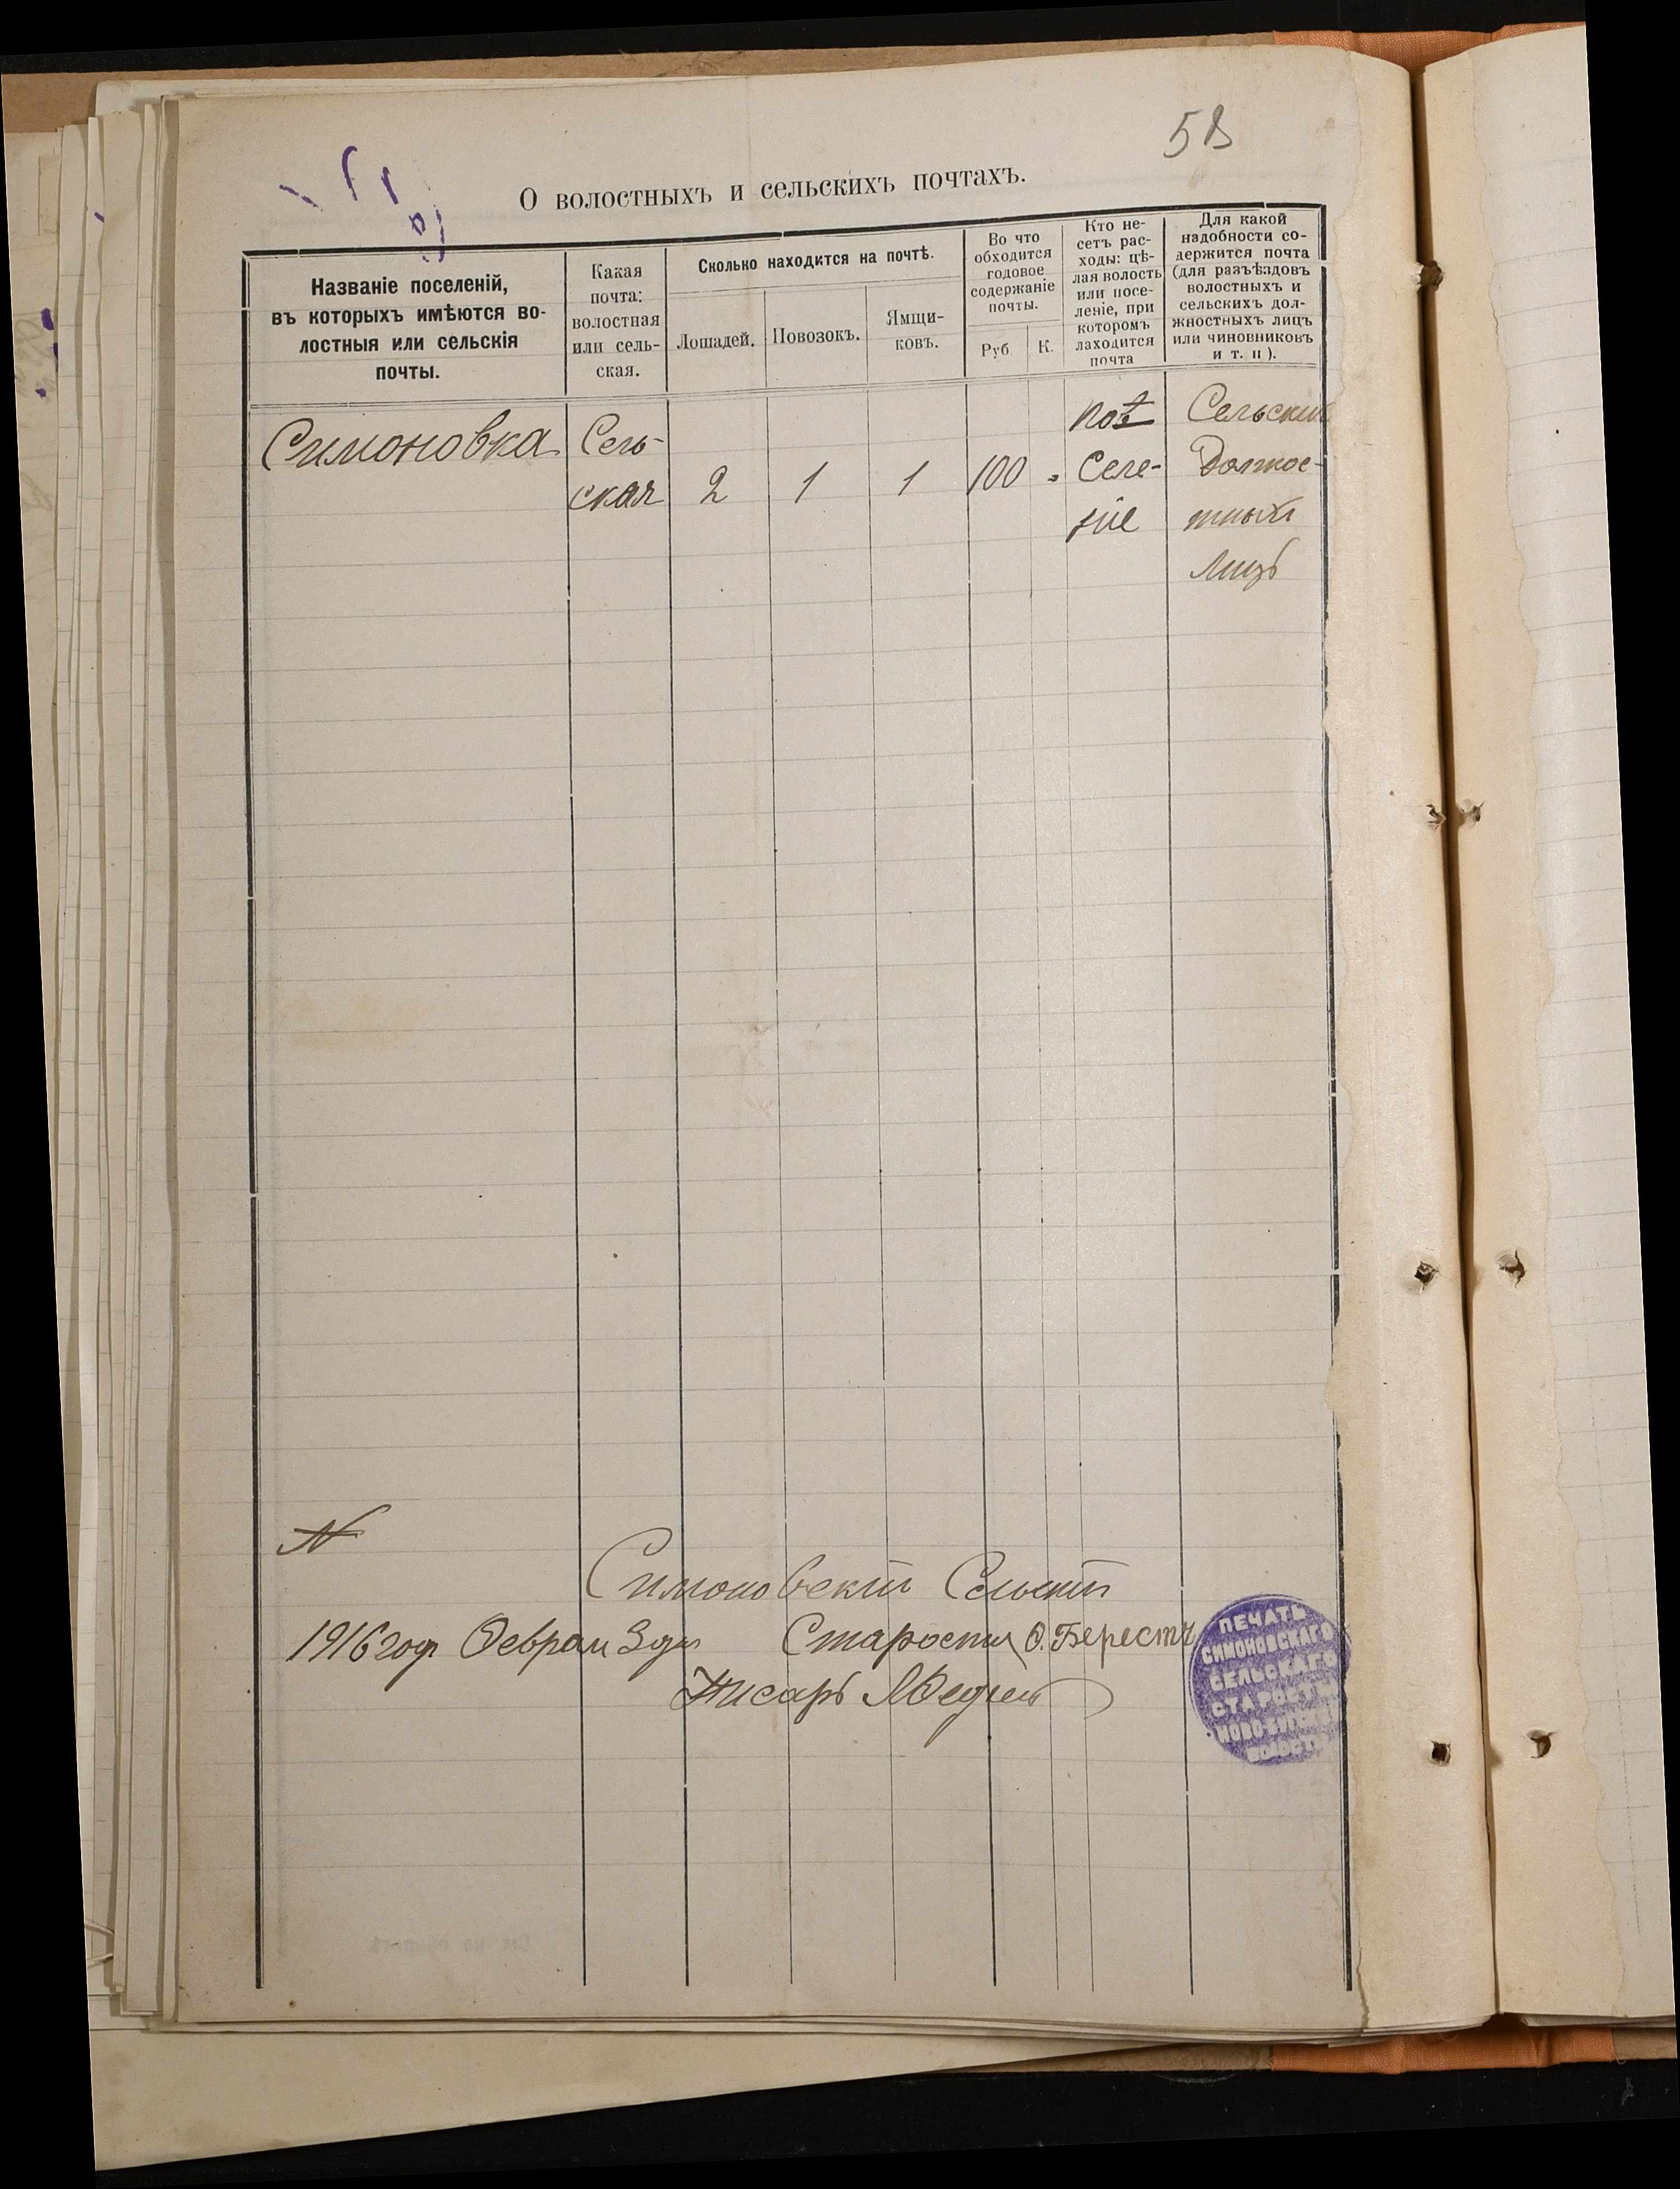 58
О волостныхъ и сельскихъ почтахъ.
Названіе поселеній,
въ которыхъ имѣются во-
лостныя или сельскія
почты.
Какая
почта:
волостная
или сель-
ская.
Сколько находится на почтѣ.
Лошадей.
Повозокъ.
Ямщи-
ковъ.
Во что
обходится
годовое
содержаніе
почты.
Руб
К.
Кто не-
сетъ рас-
ходы: цѣ-
лая волость
или посе-
леніе, при
которомъ
находится
почта
Для какой
надобности со-
держится почта
(для разъѣздовъ
волостныхъ и
сельскихъ дол-
жностныхъ лицъ
или чиновниковъ
и т. п ).
Симоновка
Сель-
ская
2
1
1
100
Селе-
ніе
Сельских
Должос-
тныхъ
Лицъ
№
Симоновскій Сельскій
1916 года Февраля 3 дня Староста О. Берест
Писарь
ПЕЧАТЬ
СИМОНОВСКАГО
СЕЛЬСКАГО
СТАРОСТЫ
НОВО-БУГСКОЙ
ВОЛОСТИ